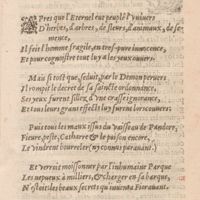 APres que l'Eternel eut peuplé l'vniuers
D'herbes, d'arbres, de fleurs, d'animaux, de semence,
Il feit l'homme fragile, en trop pure innocence,
Et pour cognoistre tout luy a les yeux ouuers.
Mais si tost que, seduit, par le Demon peruers
Il rompit le decret de sa saincte ordonnance,
Ses yeux furent sillez, d'vne crasse ignorance,
Et tous leurs grans effects luy furent lors couuers:
Puis tous les maux issus du vaisseau de Pandore,
Fieure, peste, Catharre & le poison encore,
Le vindrent bourreler
Et verroit moissonner par l'inhumaine Parque
Les nepueux à milliers, & charger en sa barque,
N'estoit les beaux secrets qu'inuenta Fiorauant.